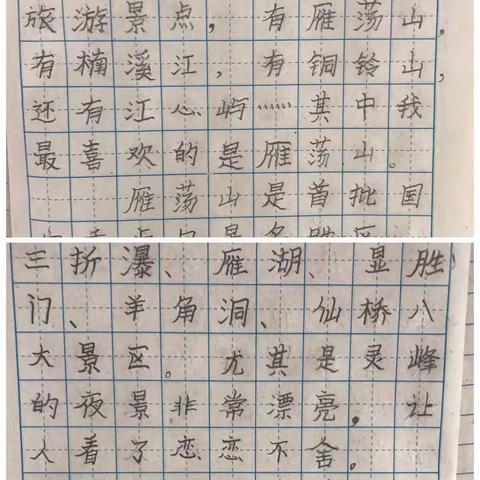 旅游景点，有雁荡山，
有楠溪江，有铜铃山，
还有江心屿……其中我
最喜欢的是雁荡山。
雁荡山是首批国
三折瀑、雁湖、显胜
门、羊角洞、仙桥八
大景区。尤其是灵峰
的夜景非常漂亮，让
人看了恋恋不舍。